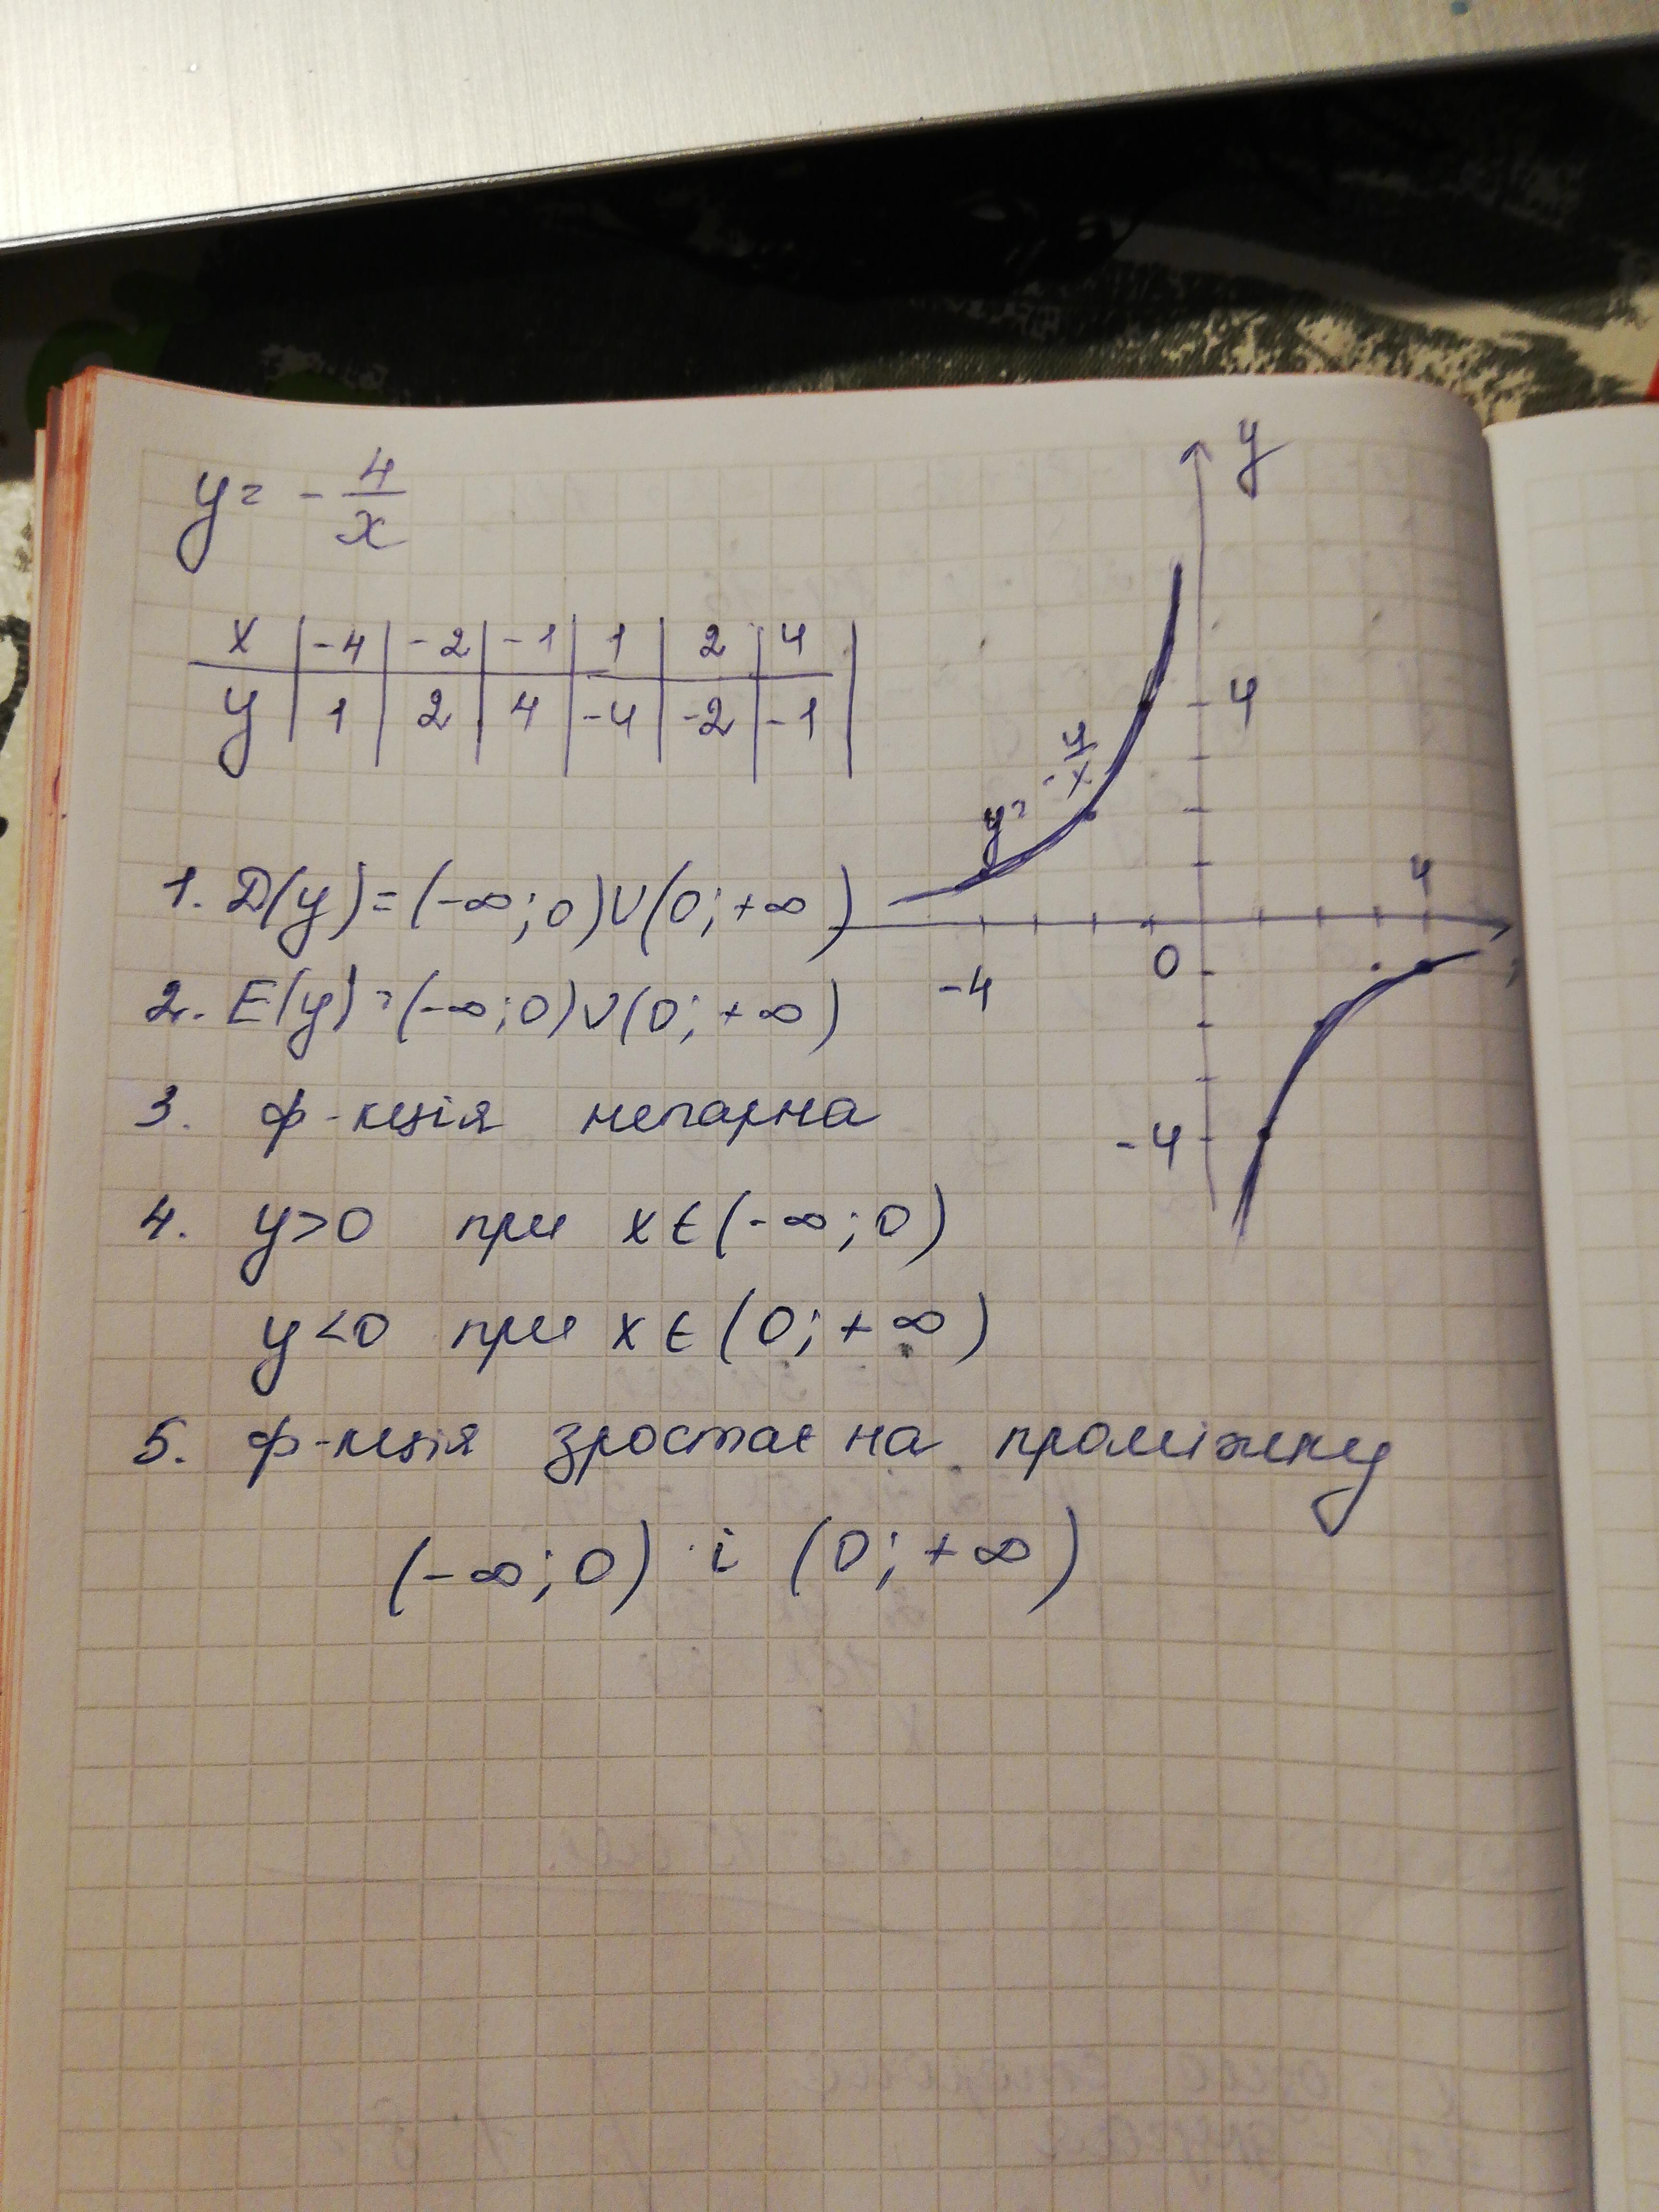 y = - 4/x
x | -4 | -2 | -1 | 1 | 2 | 4 |
y | 1 | 2 | 4 | -4 | -2 | -1 |
y
4
y = - 4/x
4
-4
0
-4
1. D(y) = (-∞; 0) ∪ (0; +∞)
2. E(y) = (-∞; 0) ∪ (0; +∞)
3. ф-кція непарна
4. y>0 при x ∈ (-∞; 0)
y<0 при x ∈ (0; +∞)
5. ф-кція зростає на проміжку
(-∞; 0) і (0; +∞)